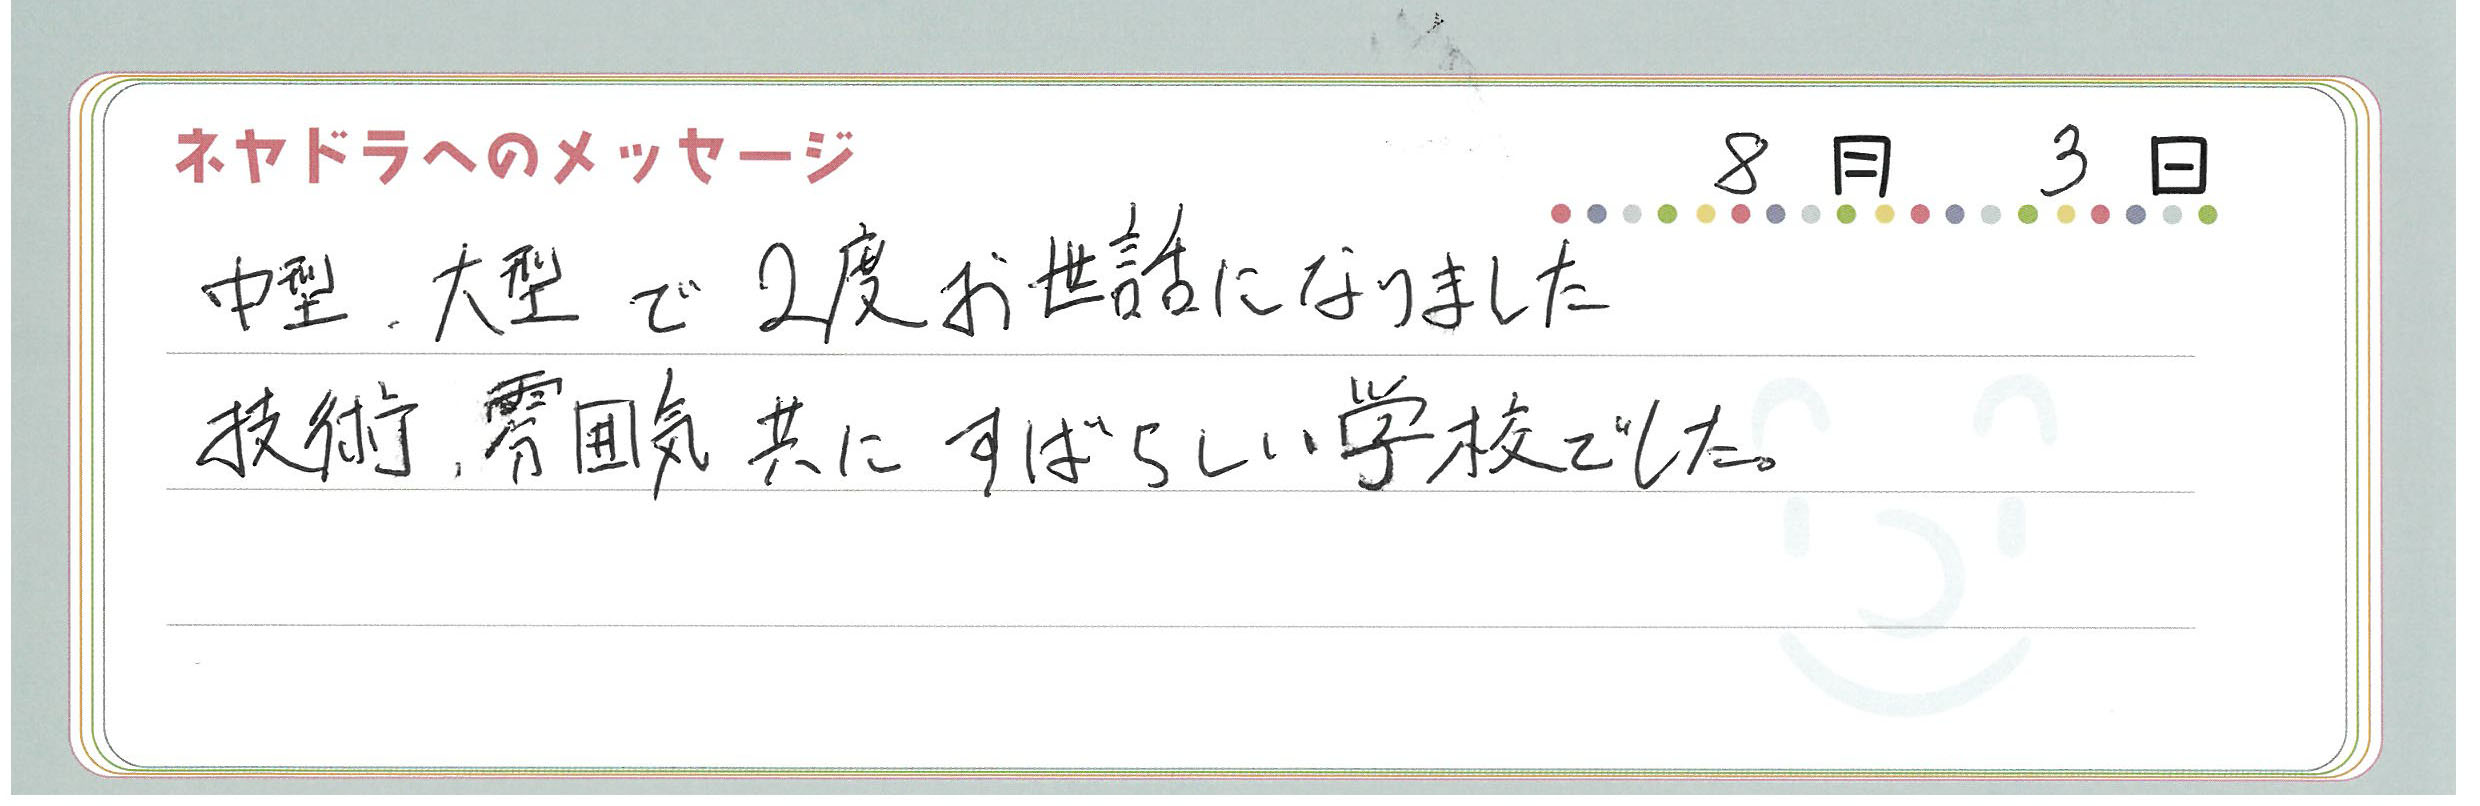 ネヤドラへのメッセージ
8月 3日
中型、大型で2度お世話になりました
技術、雰囲気共にすばらしい学校でした。